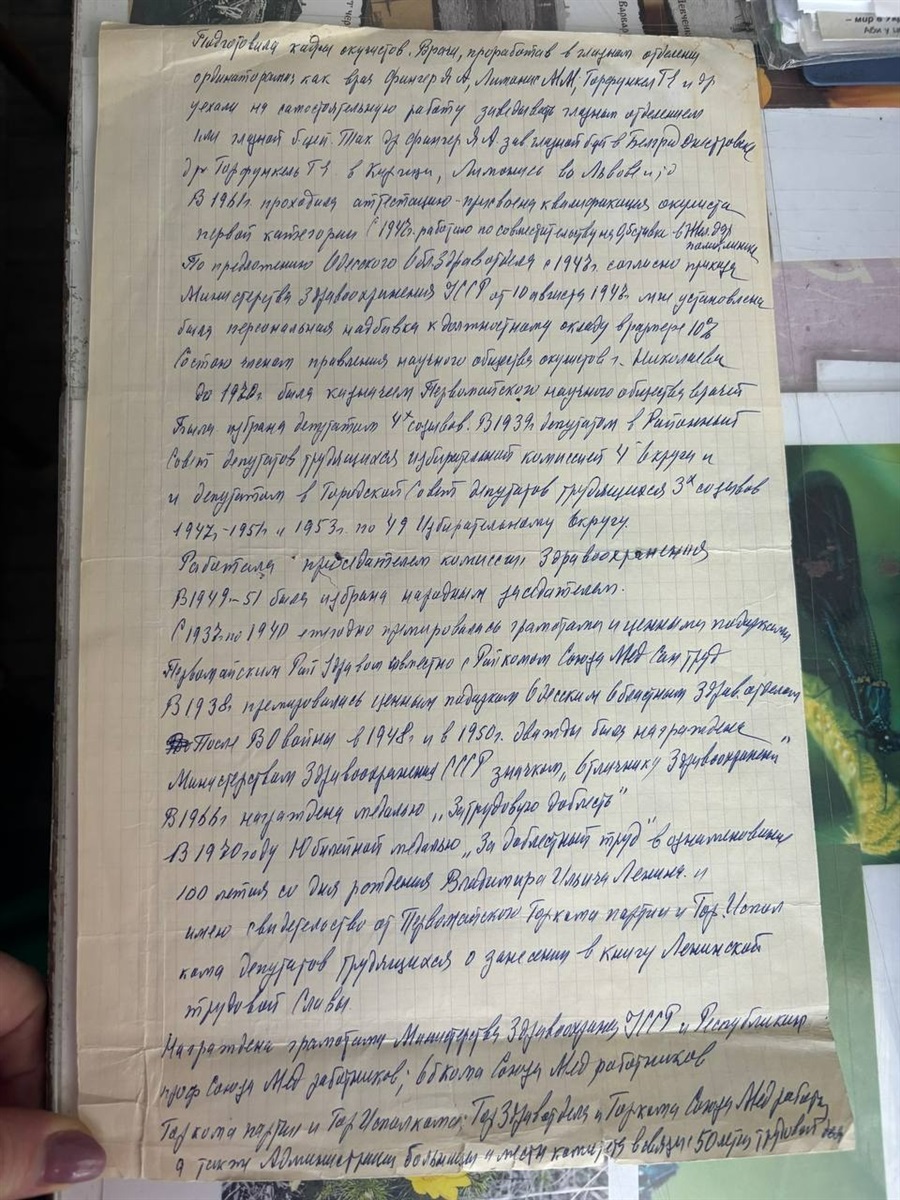 Подготовила кадры окулистов. Врачи, проработав в глазном отделении
ординаторами как врач Фингер Я А, Лиманис М М, Горфункел Т Е и др
уехали на самостоятельную работу заведывать глазным отделением
или глазной бцей. Так др Фингер Я А зав глазной бцей в Белгрид Днестровске
др Горфункель Т Е в , во Львове и
В 1961г проходила аттестацию - присвоена квалификация окулиста
первой категории С 1947г. работаю по совместительству на 0,5 ставки в Жел дор
поликлинике
По предложению Одесского Облздравотдела с 1947г. согласно приказа
Министерства Здравоохранения УССР от 10 августа 1947г. мне установлена
была персональная надбавка к должностному окладу в размере 10%
Состою членом правления научного общества окулистов г. Николаева
до 1970г. была казначеем Первомайского научного общества врачей
Была избрана депутатом 4х созывов. В 1939г. депутатом в Районный
Совет депутатов трудящихся избирательной комиссией 4 округа и
и депутатом в Городской Совет депутатов трудящихся 3х созывов
1947г-1951г и 1953г. по 49 Избирательному округу.
Работала председателем комиссии Здравоохранения
В 1949-51 была избрана народным заседателем.
С 1937 по 1940 ежегодно премировалась грамотами и ценными подарками
Первомайским Рай Здравом совместно с Райкомом Союза Мед Сан Труд
В 1938г. премировалась ценным подарком Одесским Областным Здрав. отделом
После ВО войны в 1948г. и в 1950г. дважды была награждена
Министерством Здравоохранения СССР значком „Отличнику Здравоохранения"
В 1966г награждена медалью „За трудовую доблесть"
В 1970 году Юбилейной медалью „За доблестный труд" в ознаменовании
100 летия со дня рождения Владимира Ильича Ленина. и
имею свидетельство от Первомайского Горкома партии и Гор. Испол
кома депутатов трудящихся о занесении в книгу Ленинской
трудовой Славы.
Награждена грамотами Министерства Здравоохранен УССР и Республиким
проф Союза Мед работников; Обкома Союза Мед работников
Горкома партии и Гор Исполкома; Гор Здравотдела и Горкома Союза Мед работн
а также Администрации больницы и мест комитета в связи с 50 летием трудовой